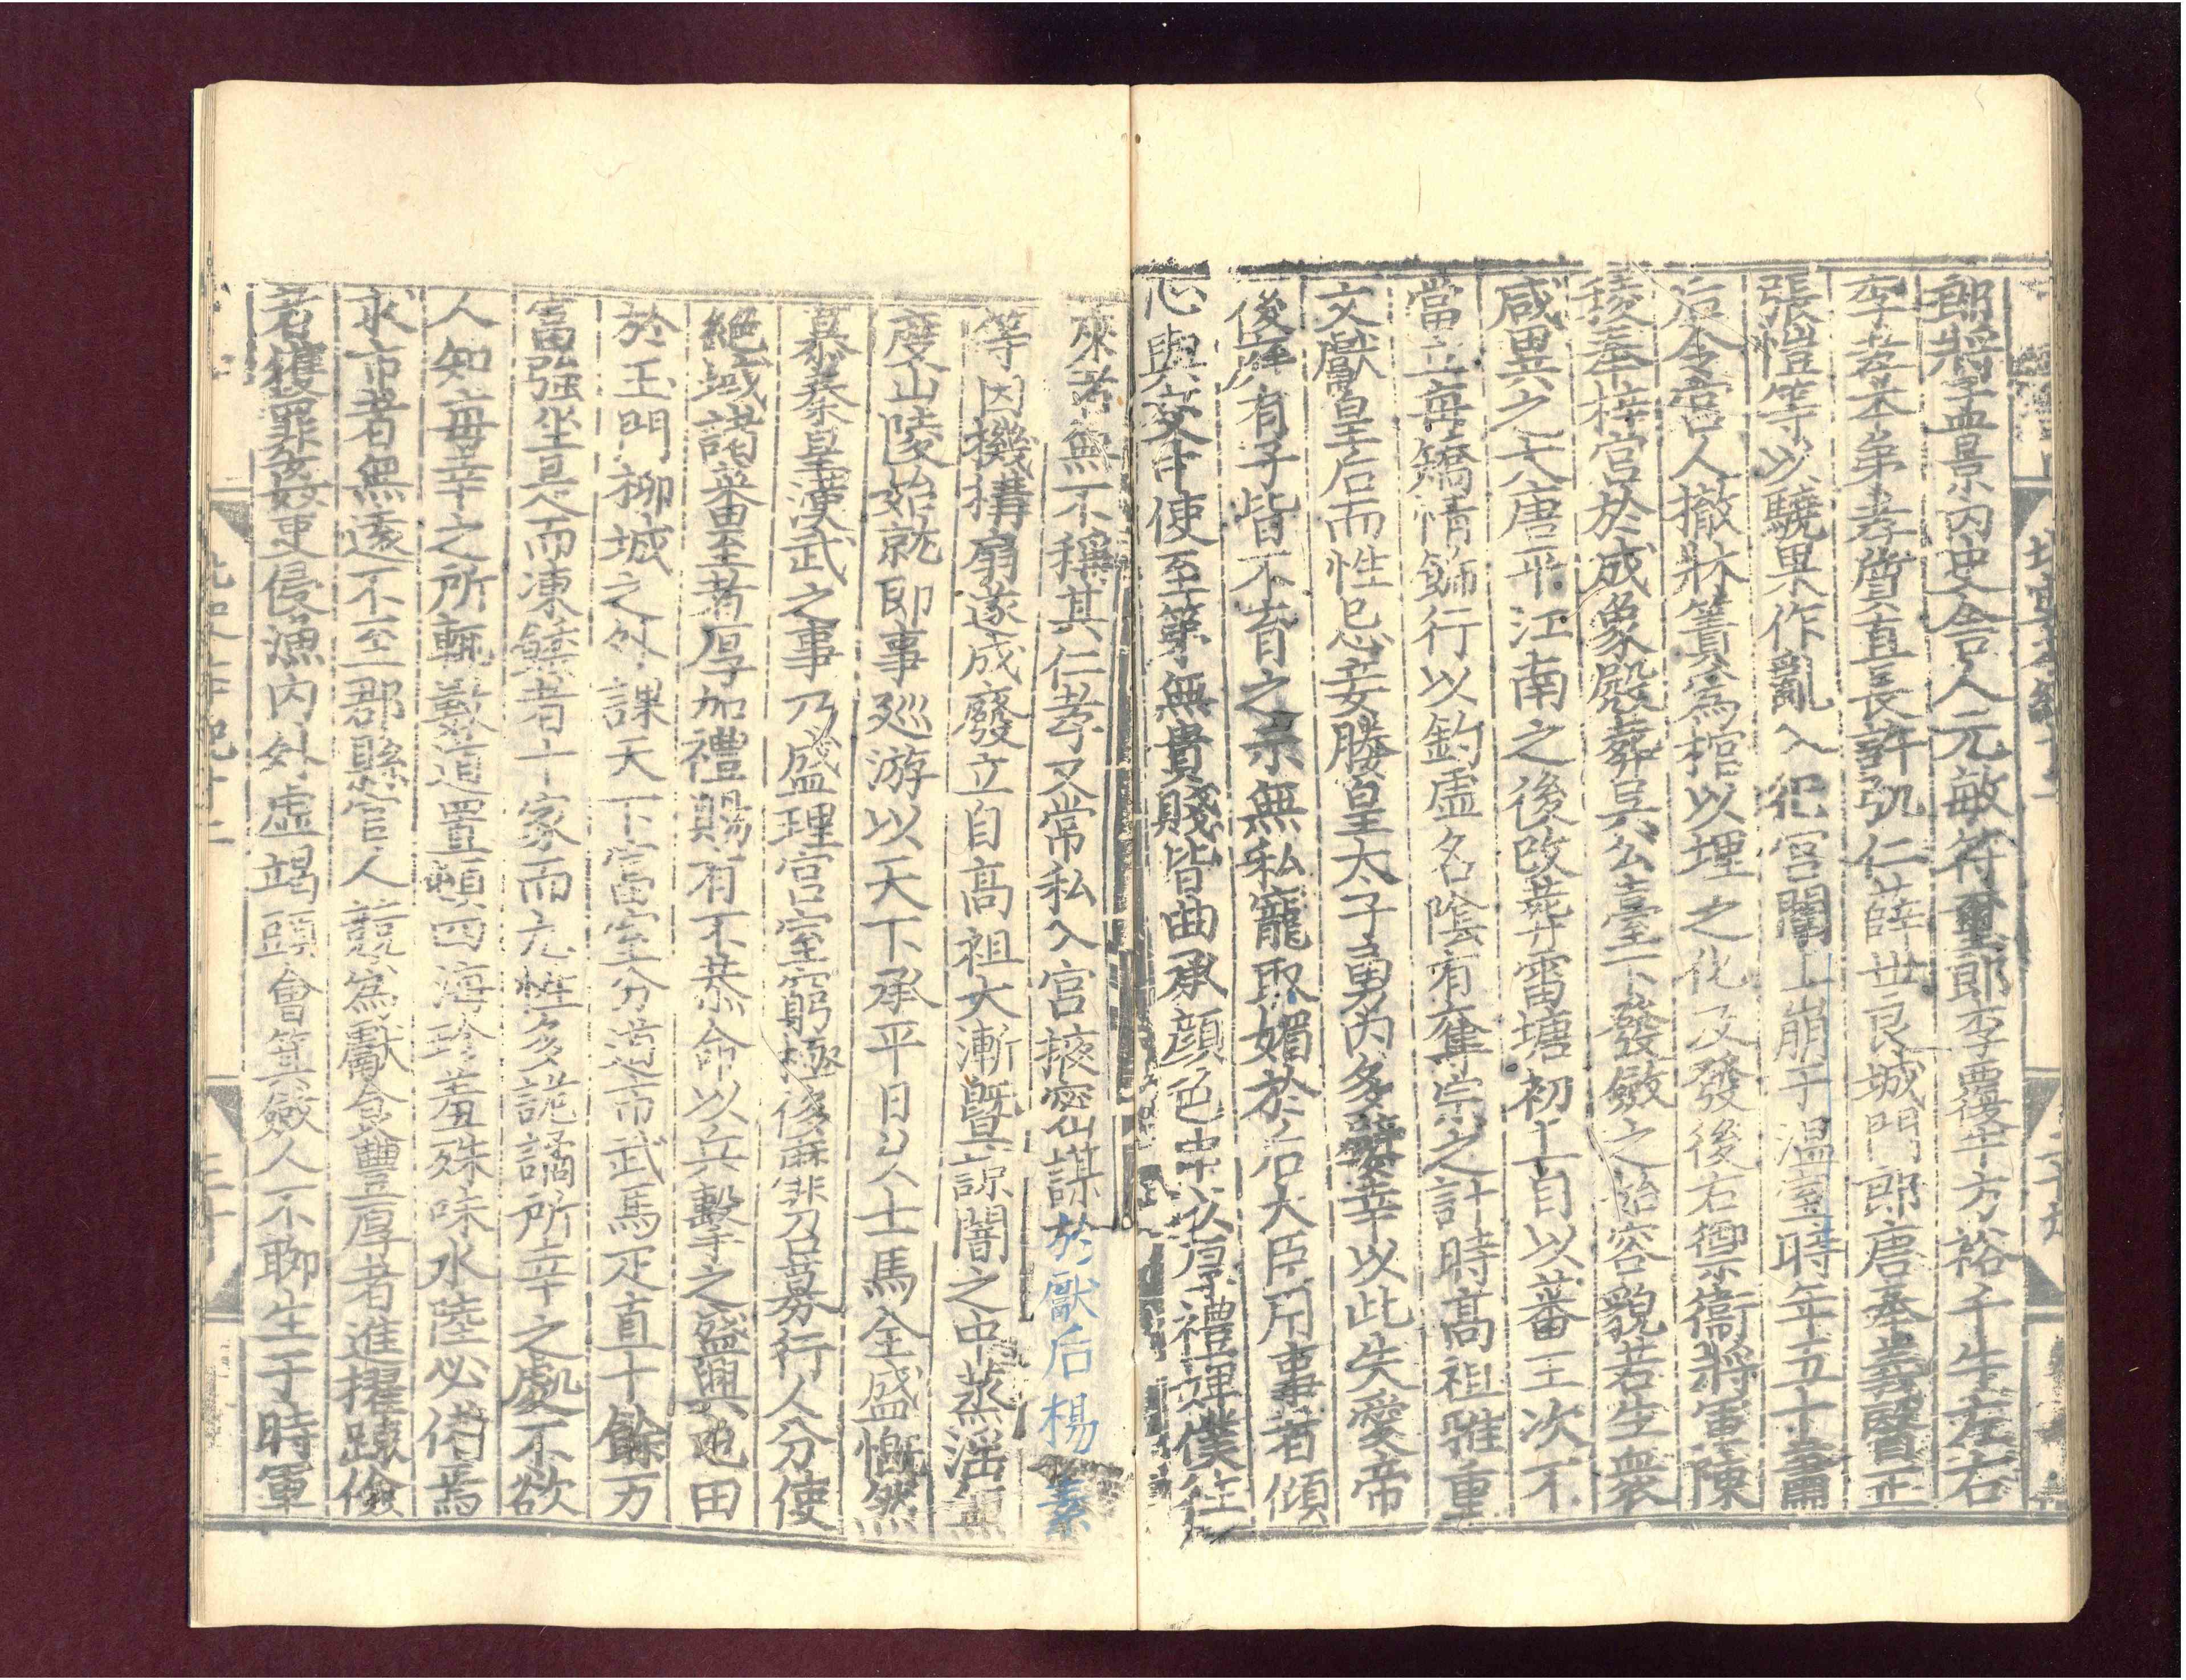 郎將孟景內史舍人元敏符璽郎李覆牛方裕千牛左右
李孝本弟孝質直長許弘仁薛世良城門郎唐奉義醫正
張愷等以驍果作亂入犯宮闈上崩于溫室時年五十蕭
后令宮人撤牀簀爲棺以埋之化及發後右禦衛將軍陳
稜奉梓宮於成象殿葬吳公臺下發斂之始容貌若生衆
咸異之大唐平江南之後改葬雷塘初上自以蕃王次不
當立每矯情飾行以釣虛名陰有奪宗之計時高祖雅重
文獻皇后而性忌妾媵皇太子勇內多嬖幸以此失愛帝
後庭有子皆不育之示無私寵取媚於后大臣用事者傾
心與交中使至第無貴賤皆曲承顏色申以厚禮婢僕往
來者無不稱其仁孝又常私入宮掖密謀於獻后楊素
等因機構扇遂成廢立自高祖大漸暨諒闇之中蒸淫無
度山陵始就即事巡游以天下承平日久士馬全盛慨然
慕秦皇漢武之事乃盛理宮室窮極侈靡召募行人分使
絕域諸蕃至者厚加禮賜有不恭命以兵擊之盛興屯田
於玉門柳城之外課天下富室分道市武馬疋直十餘万
富強坐是而凍餒者十家而九性多詭譎所幸之處不欲
人知每幸之所輒數道置頓四海珍羞殊味水陸必備焉
求市者無遠不至郡縣官人競爲獻食豐厚者進擢踈儉
者獲罪姦吏侵漁內外虛竭頭會箕斂人不聊生于時軍